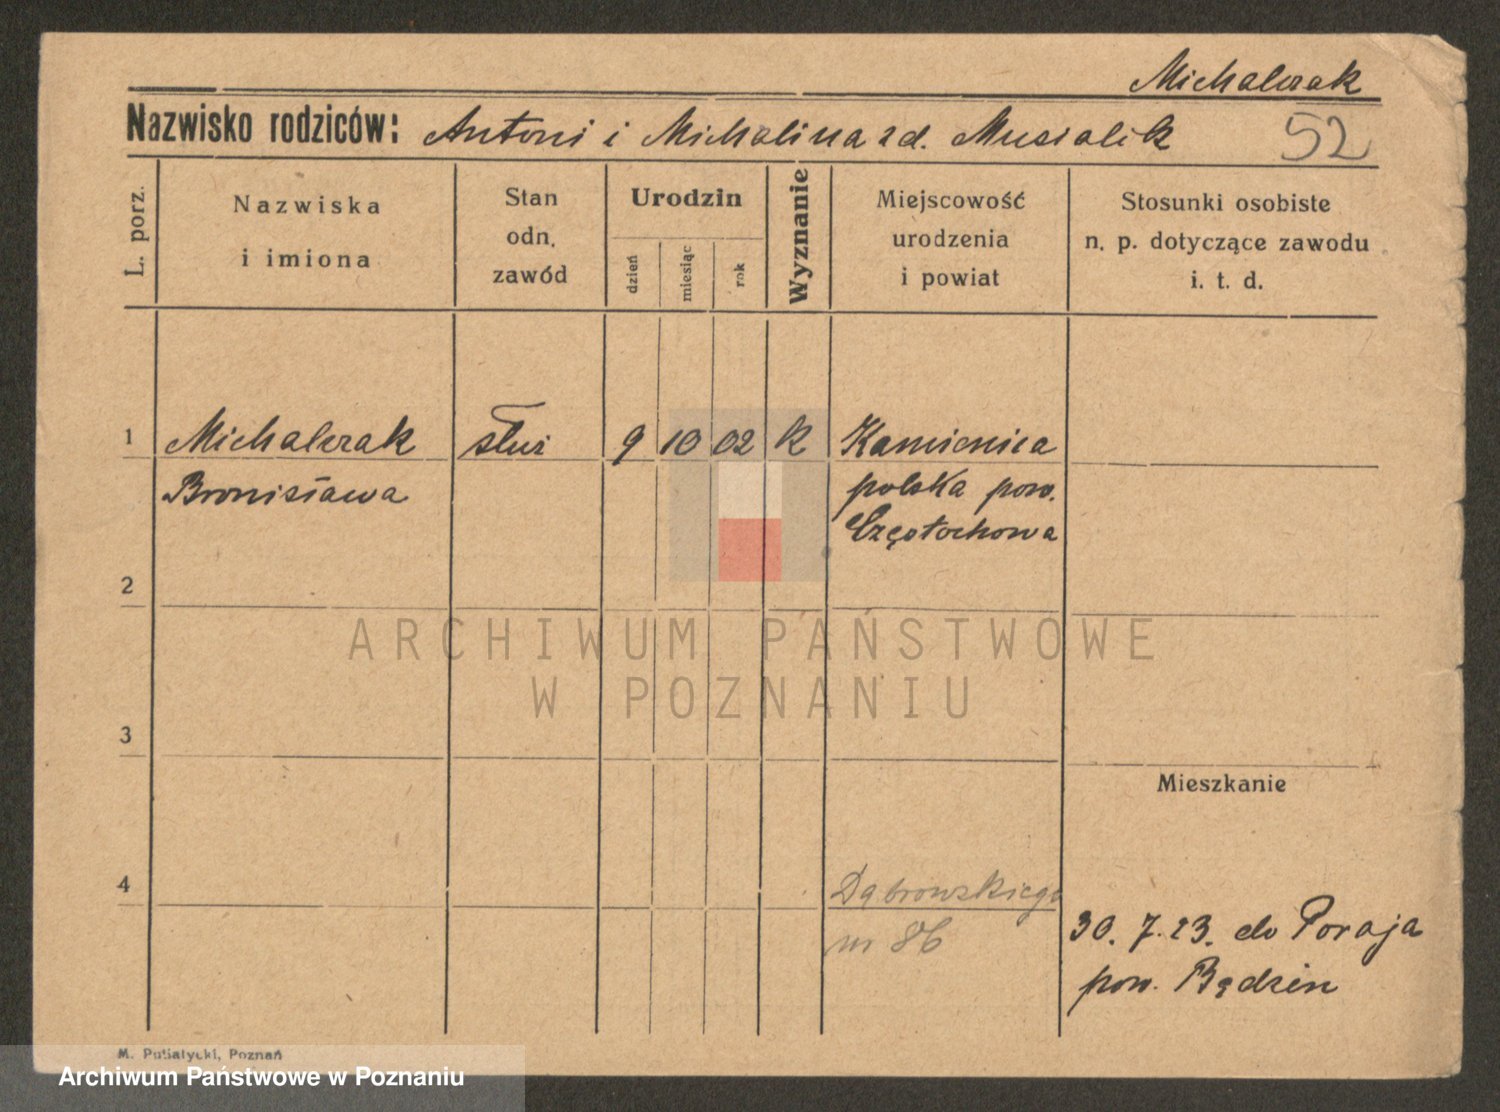 Michalczak
Nazwisko rodziców: Antoni i Michalina zd. Musialik 52
L. porz.
Nazwiska
i imiona
Stan
odn.
zawód
Urodzin
dzień
miesiąc
rok
Wyznanie
Miejscowość
urodzenia
i powiat
Stosunki osobiste
n. p. dotyczące zawodu
i. t. d.
1 Michalczak służ 9 10 02 k Kamienica
Bronisława polska pow.
Częstochowa
2
ARCHIWUM PAŃSTWOWE
W POZNANIU
3
Mieszkanie
4 Dąbrowskiego
nr 86
30. 7. 23. do Poraja
pow. Będzin
M. Putiatycki, Poznań
Archiwum Państwowe w Poznaniu